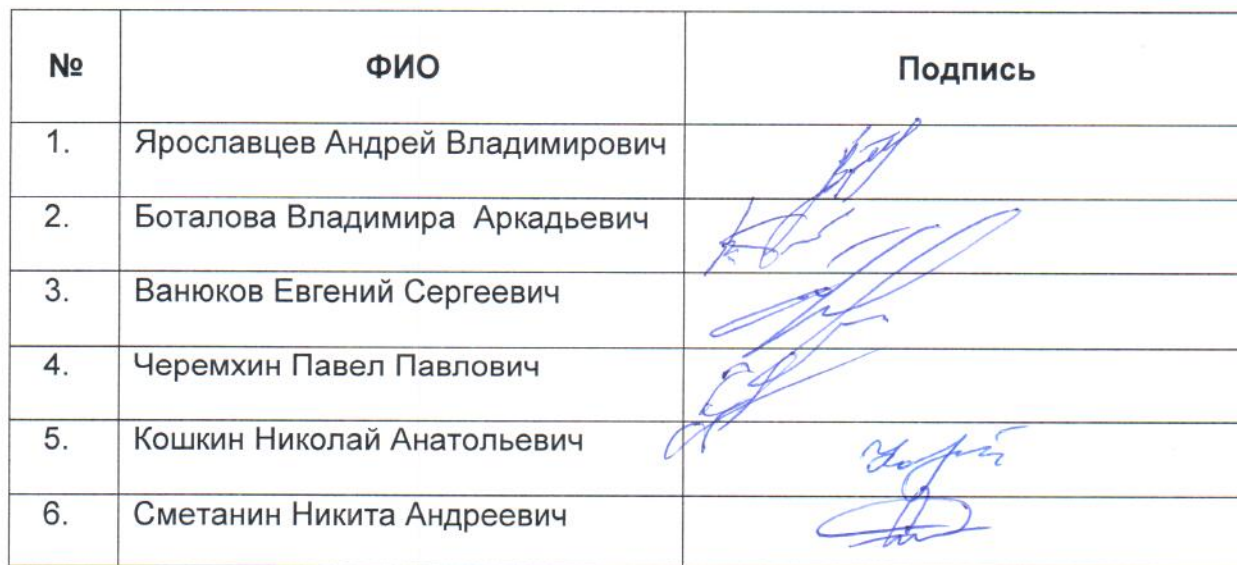 № ФИО Подпись
1. Ярославцев Андрей Владимирович
2. Боталова Владимира Аркадьевич
3. Ванюков Евгений Сергеевич
4. Черемхин Павел Павлович
5. Кошкин Николай Анатольевич
6. Сметанин Никита Андреевич